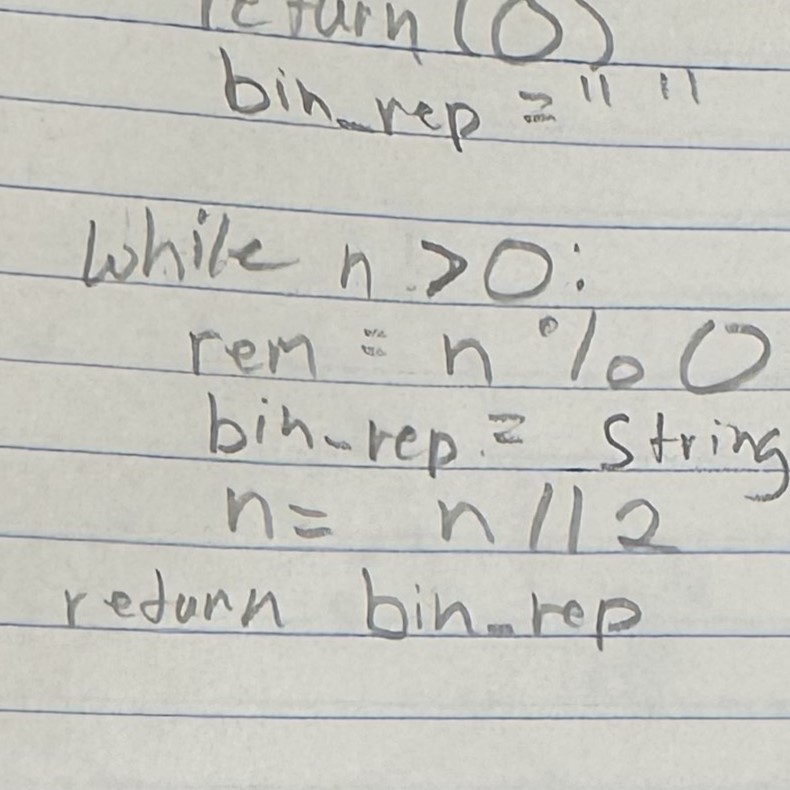 return (0)
bin_rep = " "
while n > 0:
rem = n % 0
bin_rep = String
n = n // 2
return bin_rep